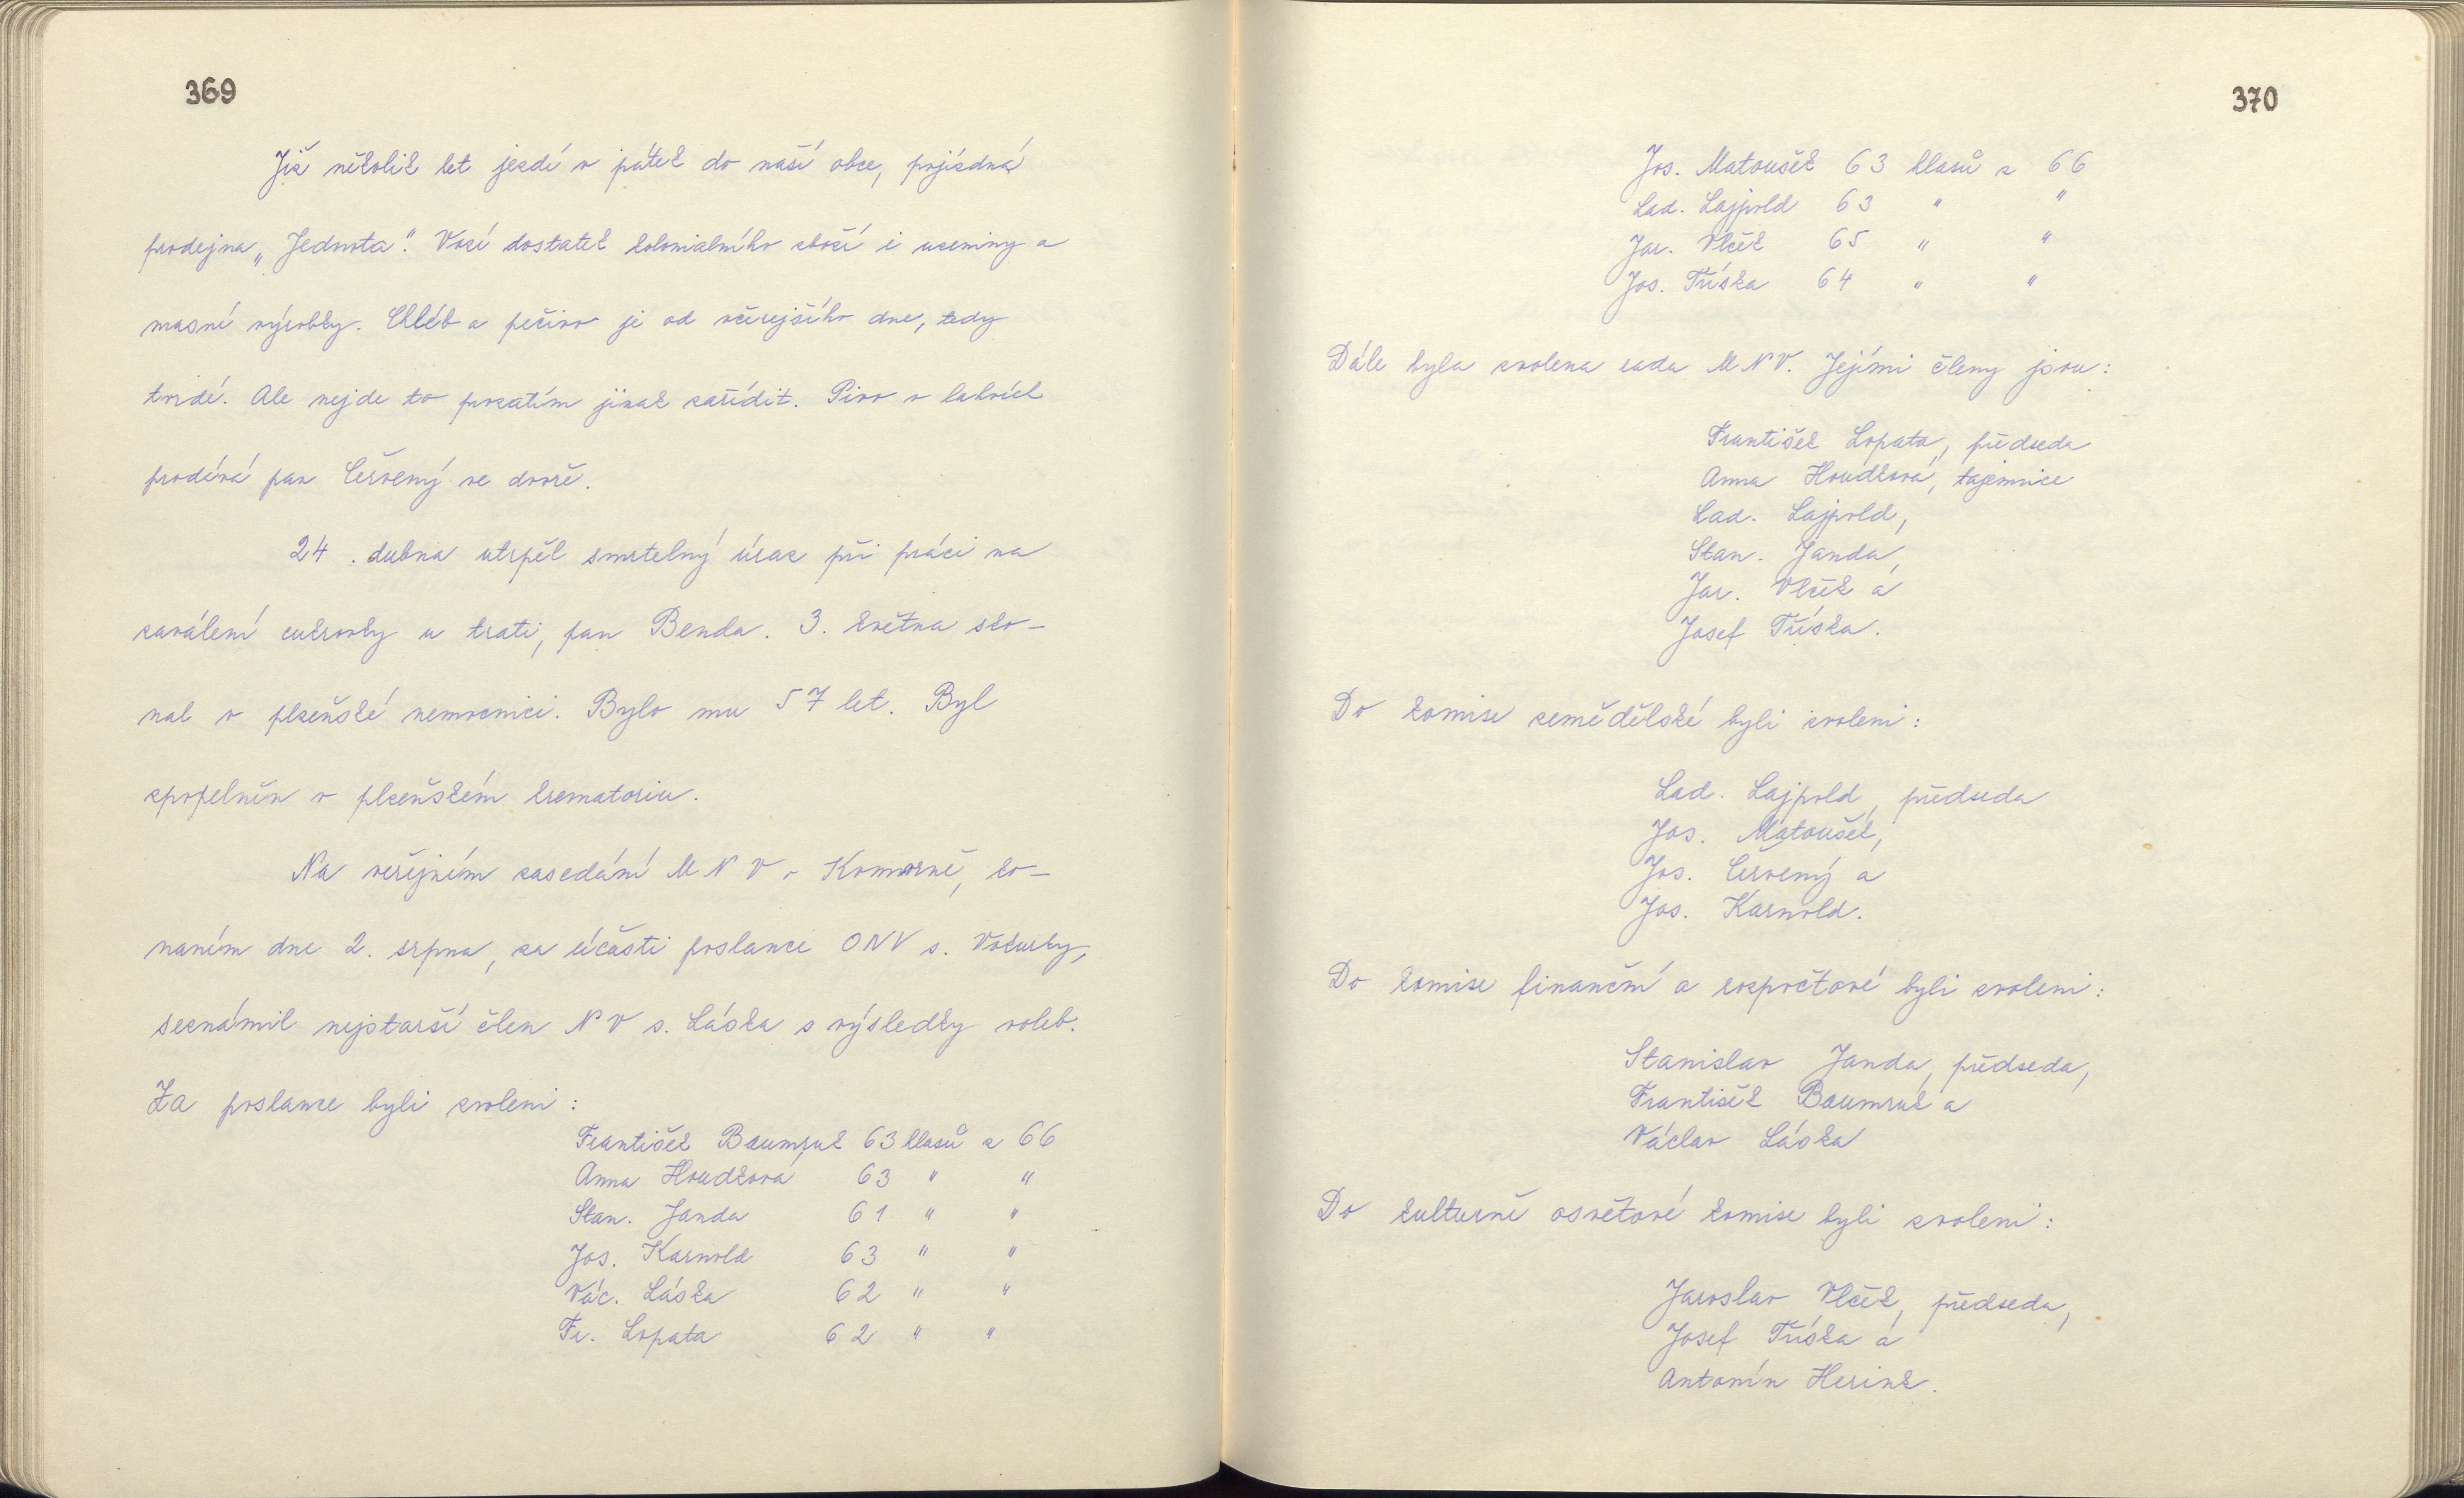 369
Již několik let jezdí v pátek do naší obce, pojízdná
prodejna „Jednota". Vozí dostatek kolonialního zboží i uzeniny a
masné výrobky. Chléb a pečivo je od včerejšího dne, tedy
tvrdé. Ale nejde to prozatím jinak zařídit. Pivo v lahvích
prodává pan Červený ve dvoře.
24. dubna utrpěl smrtelný úraz při práci na
zaválení cukrovky u trati, pan Benda. 3. května sko-
nal v plzeňské nemocnici. Bylo mu 57 let. Byl
zpopelněn v plzeňském krematoriu.
Na veřejném zasedání MNV v Komorně, ko-
naném dne 2. srpna, za účasti poslance ONV s. Vokurky,
seznámil nejstarší člen NV s. Láska s výsledky voleb.
Za poslance byli zvoleni :
František Baumruk 63 hlasů z 66
Anna Houdková 63 " "
Stan. Janda 61 " "
Jos. Karnold 63 " "
Vác. Láska 62 " "
Fr. Lopata 62 " "
370
Jos. Matoušek 63 hlasů z 66
Lad. Lajpold 63 " "
Jar. Vlček 65 " "
Jos. Tříska 64 " "
Dále byla zvolena rada MNV. Jejími členy jsou :
František Lopata, předseda
Anna Houdková, tajemnice
Lad. Lajpold,
Stan. Janda,
Jar. Vlček a
Josef Tříska.
Do komise zemědělské byli zvoleni :
Lad. Lajpold, předseda
Jos. Matoušek,
Jos. Červený a
Jos. Karnold.
Do komise finanční a rozpočtové byli zvoleni :
Stanislav Janda, předseda,
František Baumruk a
Václav Láska
Do kulturně osvětové komise byli zvoleni :
Jaroslav Vlček, předseda,
Josef Tříska a
Antonín Herink.